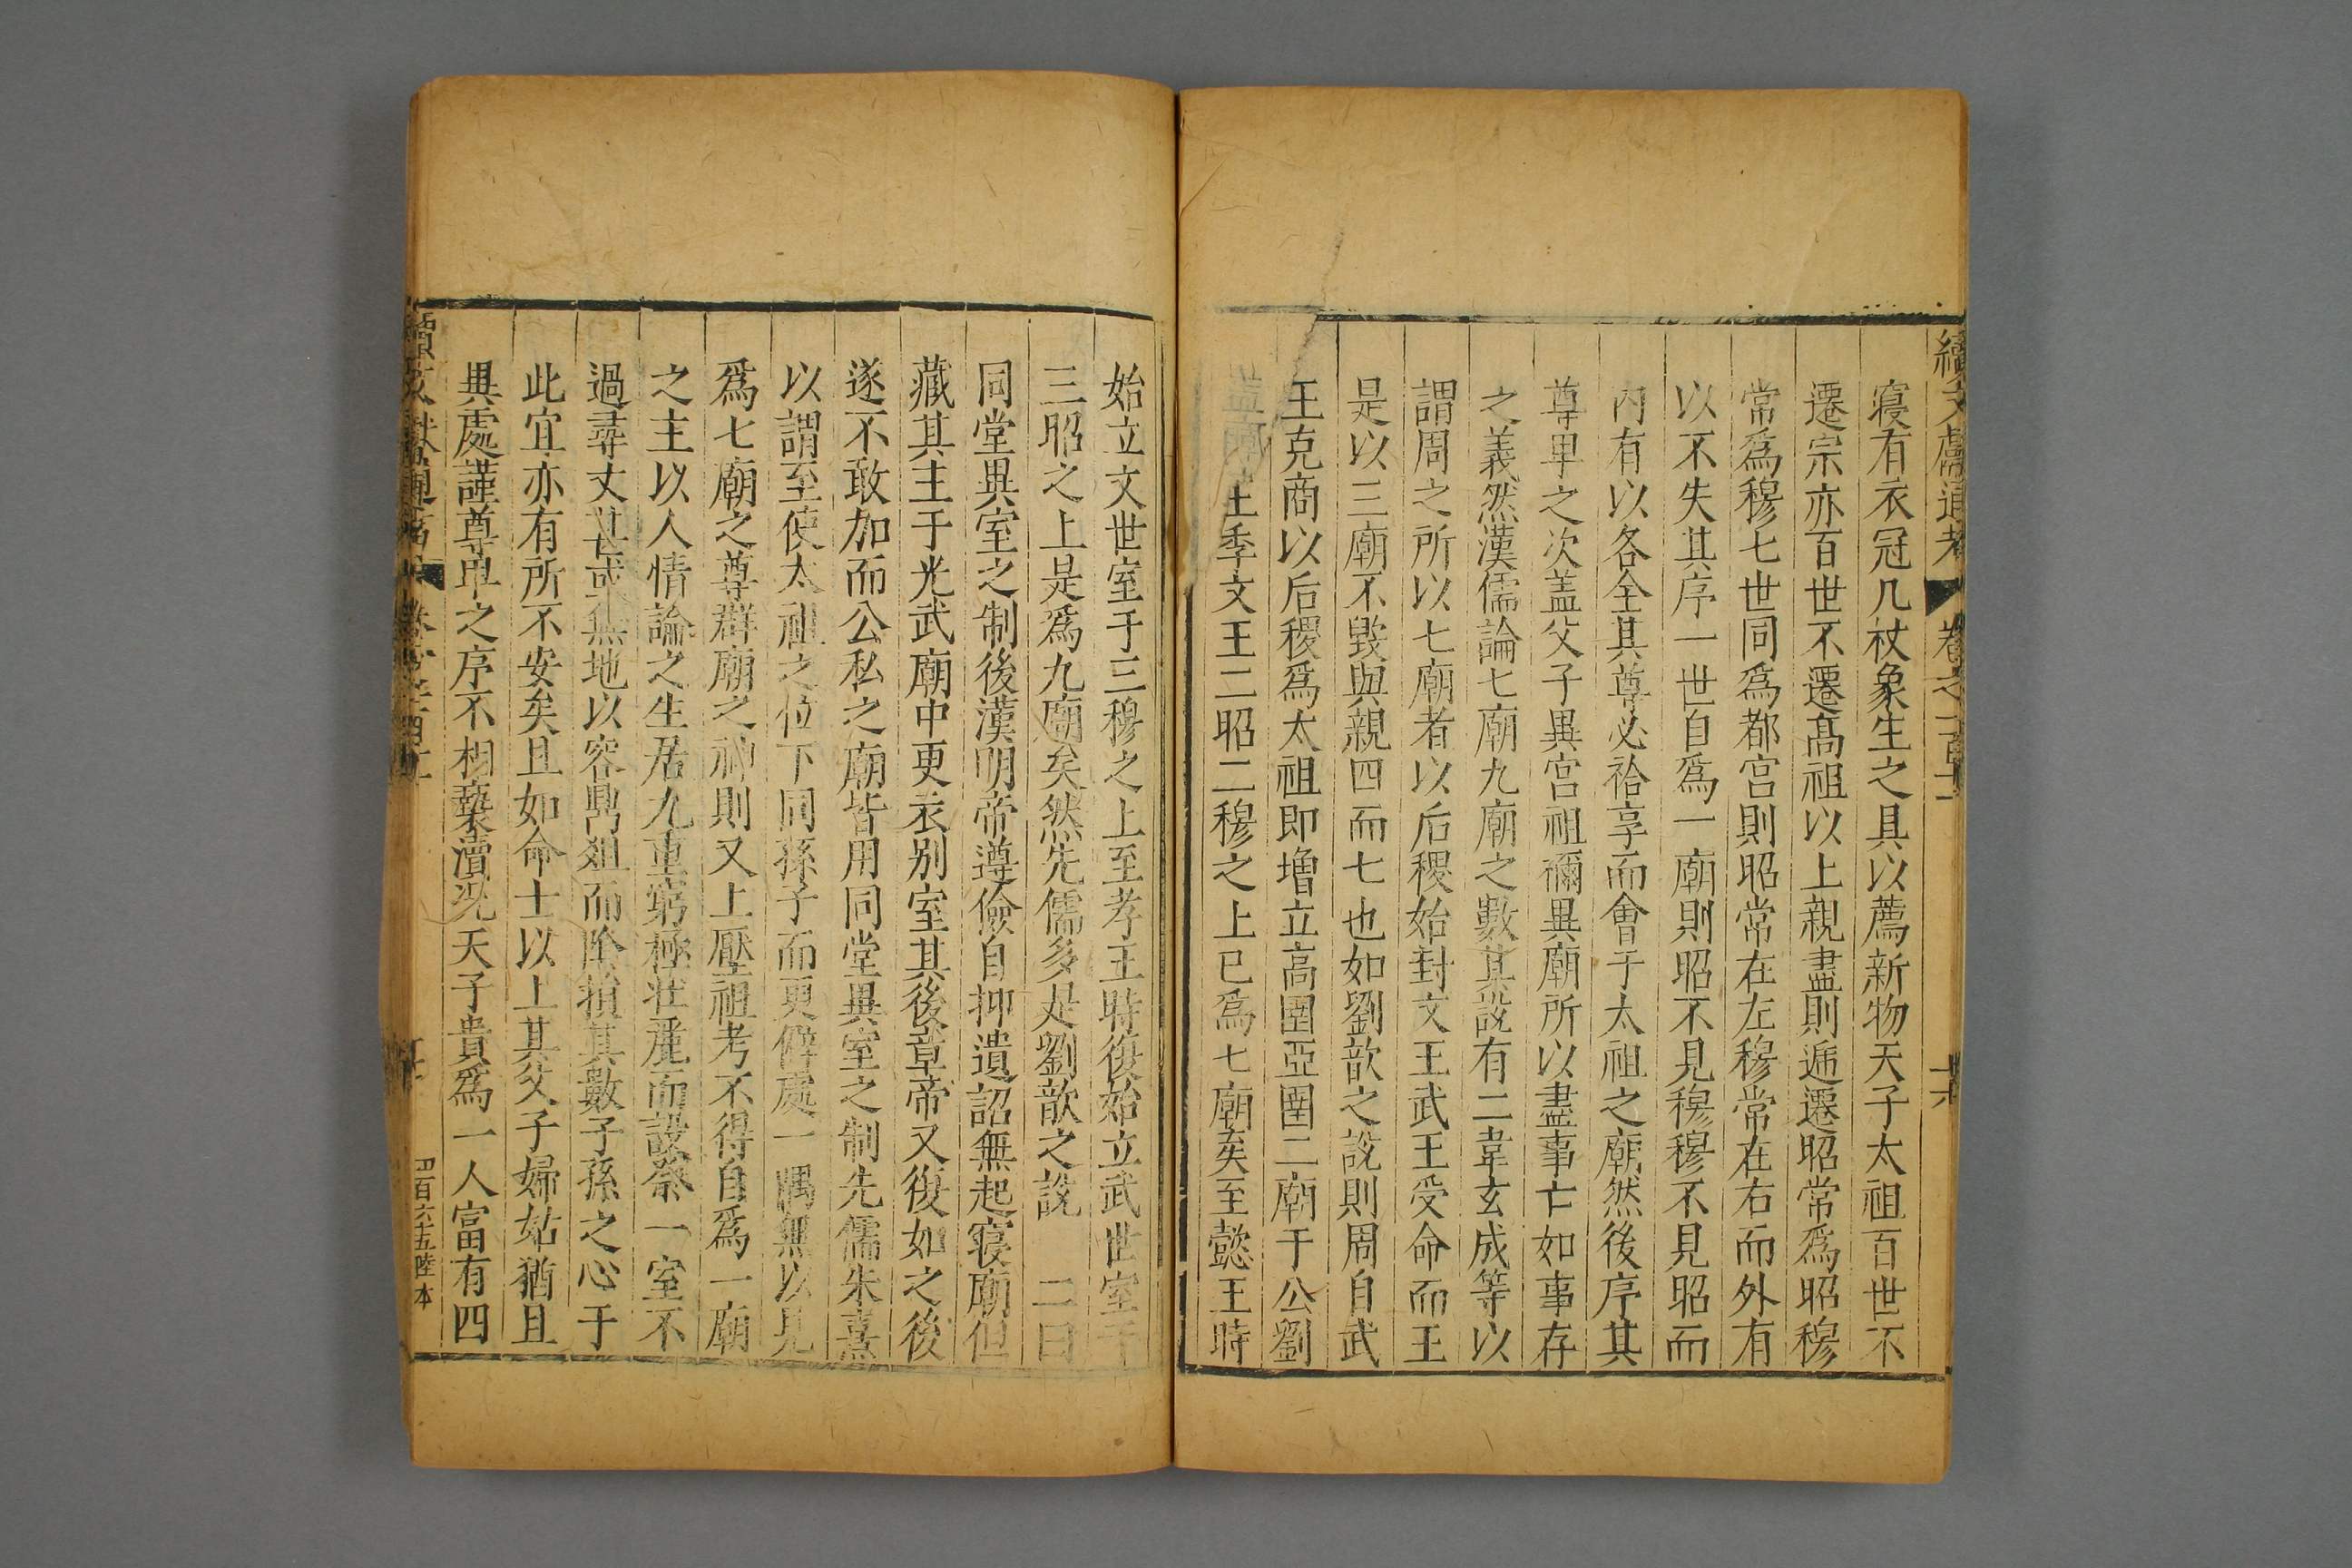 續文獻通考 卷之一百十一 十六
寢有衣冠几杖象生之具以薦新物天子太祖百世不
遷宗亦百世不遷高祖以上親盡則遞遷昭常爲昭穆
常爲穆七世同爲都宮則昭常在左穆常在右而外有
以不失其序一世自爲一廟則昭不見穆穆不見昭而
內有以各全其尊必祫享而會于太祖之廟然後序其
尊卑之次蓋父子異宮祖禰異廟所以盡事亡如事存
之義然漢儒論七廟九廟之數其說有二韋玄成等以
謂周之所以七廟者以后稷始封文王武王受命而王
是以三廟不毀與親四而七也如劉歆之說則周自武
王克商以后稷爲太祖即增立高圉亞圉二廟于公劉
王季文王二昭二穆之上已爲七廟矣至懿王時
始立文世室于三穆之上至孝王時復始立武世室于
三昭之上是爲九廟矣然先儒多是劉歆之說 二曰
同堂異室之制後漢明帝遵儉自抑遺詔無起寢廟但
藏其主于光武廟中更衣别室其後章帝又復如之後
遂不敢加而公私之廟皆用同堂異室之制先儒朱熹
以謂至使太祖之位下同孫子而更僻處一隅無以見
爲七廟之尊群廟之神則又上壓祖考不得自爲一廟
之主以人情論之生居九重窮極壯麗而設祭一室不
過尋丈甚或無地以容鼎俎而陰損其數子孫之心于
此宜亦有所不安矣且如命士以上其父子婦姑猶且
異處謹尊卑之序不相褻瀆况天子貴爲一人富有四
續文獻通考
四百六十五陸本